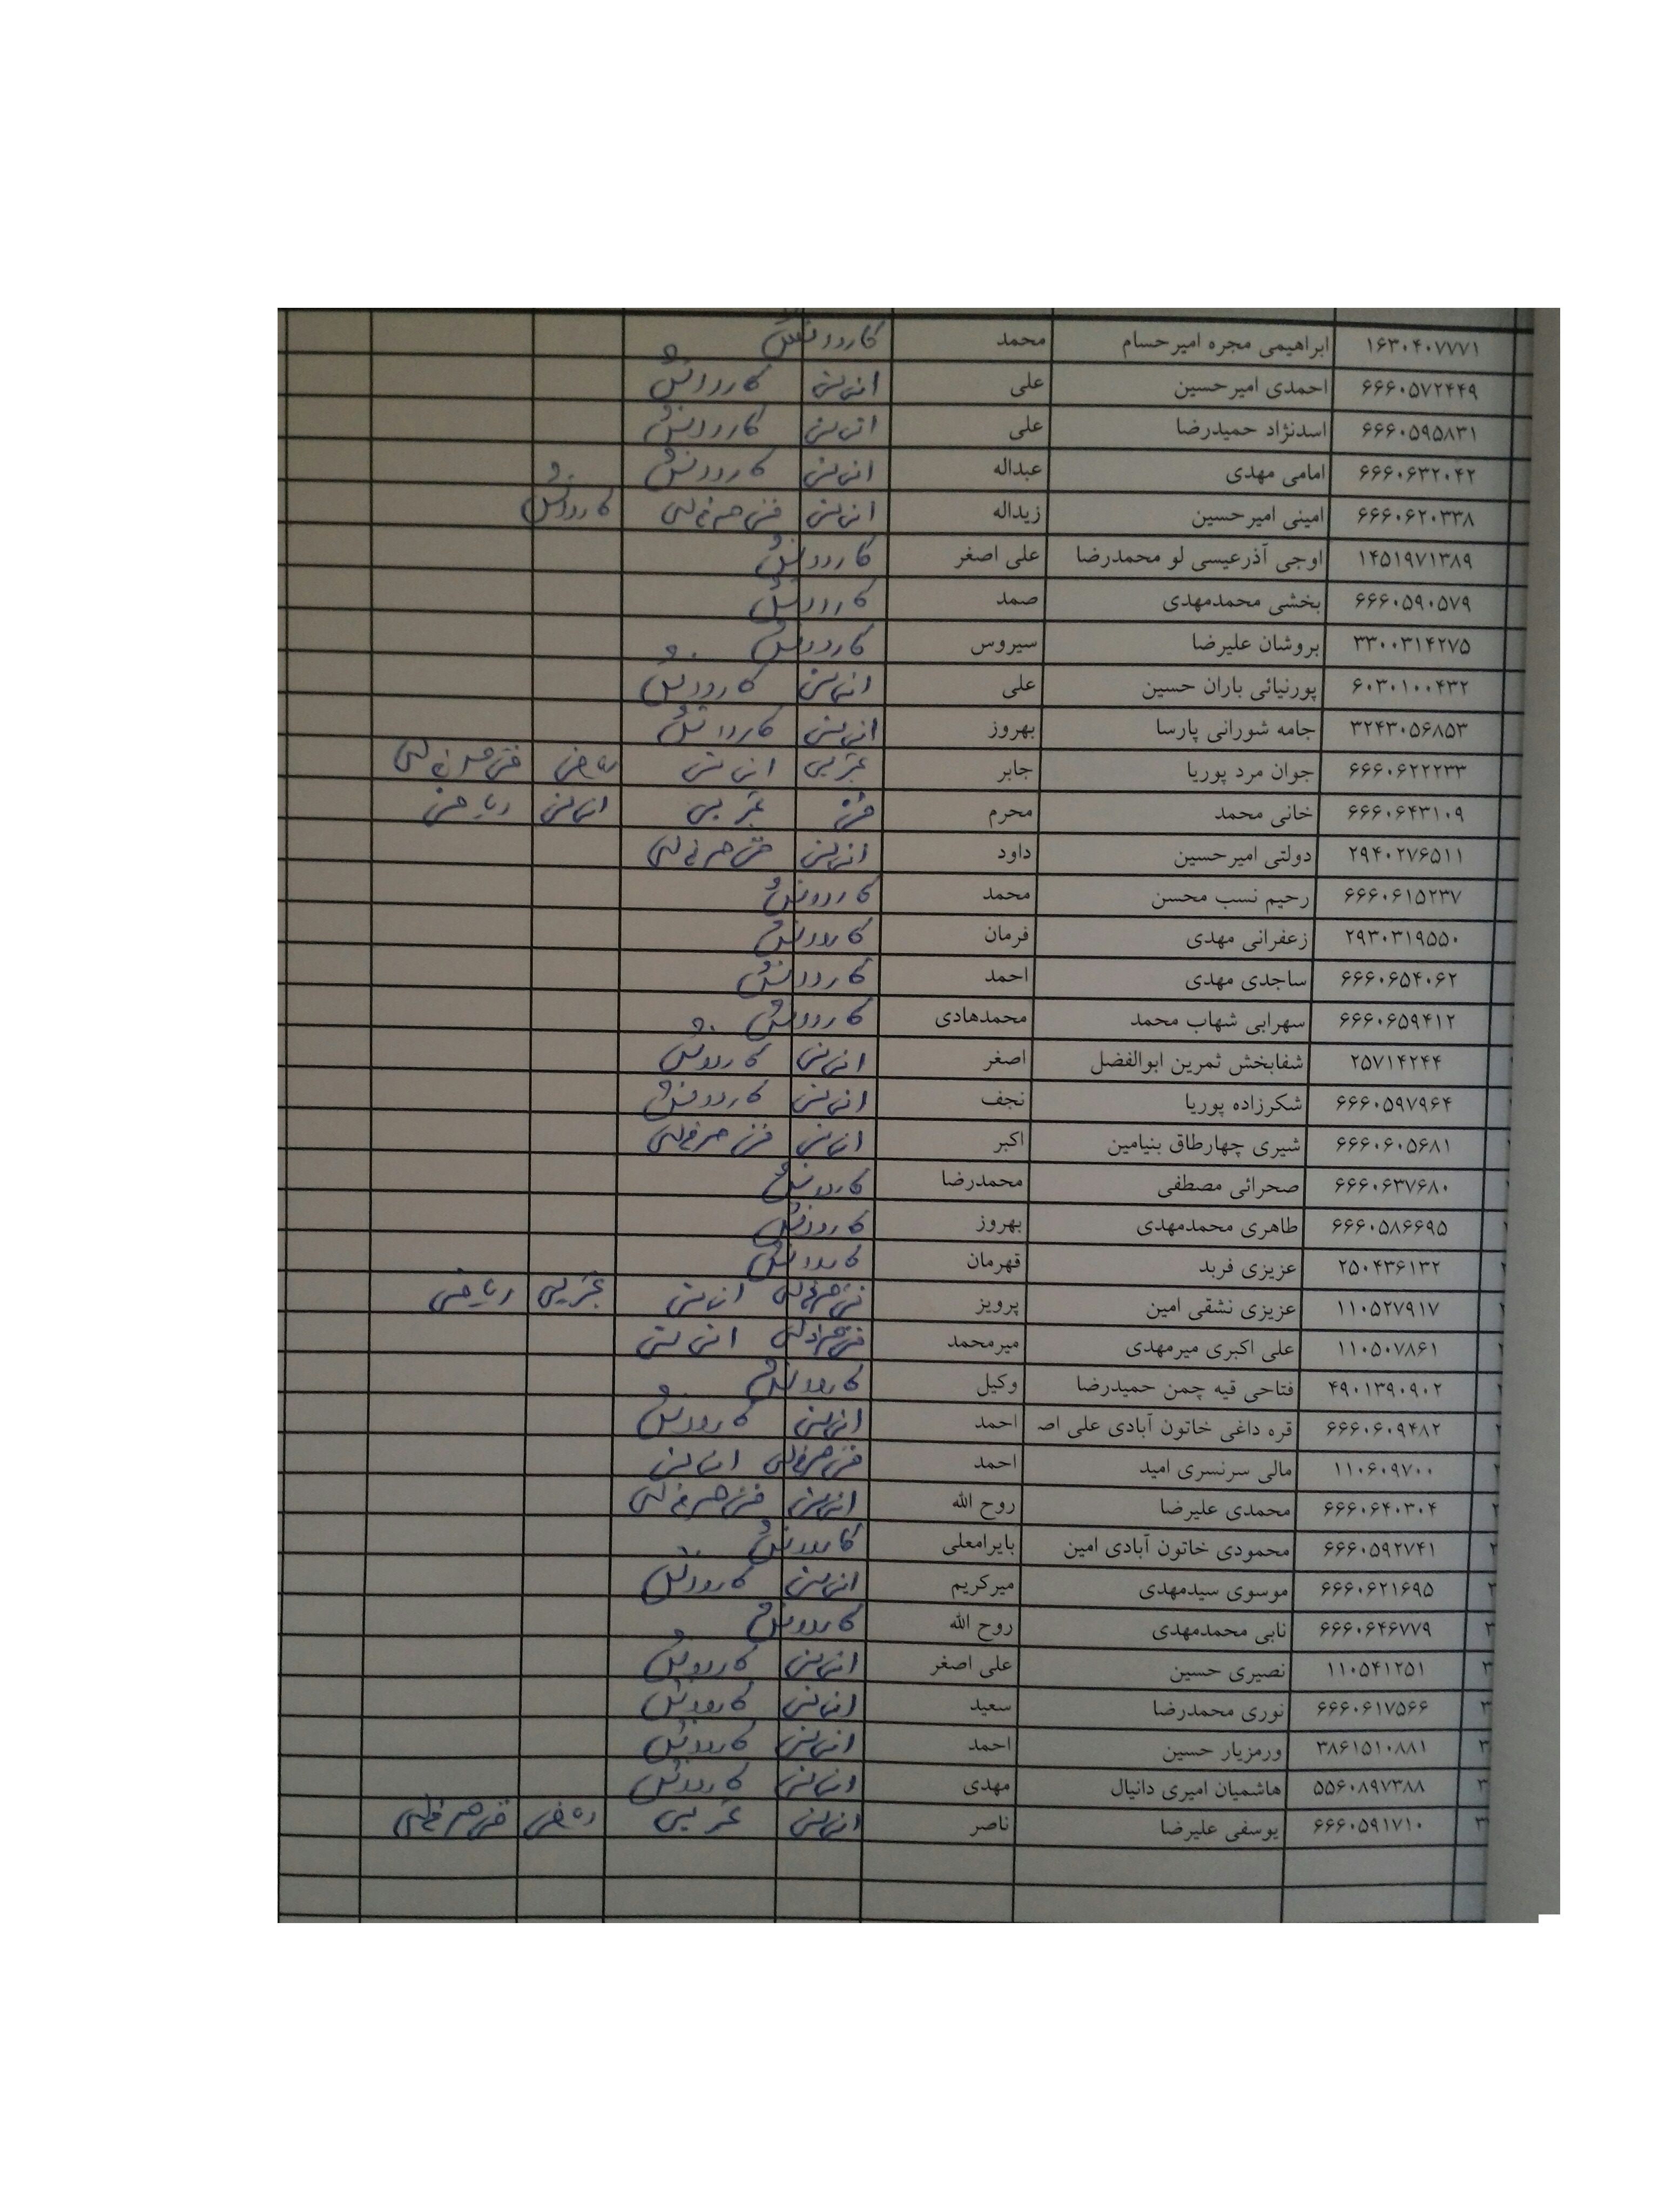 ۱۶۳۰۴۰۷۷۷۱ ابراهیمی مجره امیرحسام محمد کاردانش
۶۶۶۰۵۷۲۴۴۹ احمدی امیرحسین علی انسانی کاردانش
۶۶۶۰۵۹۵۸۳۱ اسدنژاد حمیدرضا علی انسانی کاردانش
۶۶۶۰۶۳۲۰۴۲ امامی مهدی عبداله انسانی کاردانش
۶۶۶۰۶۲۰۳۳۸ امینی امیرحسین زیداله انسانی فنی حرفه ای کاردانش
۱۴۵۱۹۷۱۳۸۹ اوجی آذرعیسی لو محمدرضا علی اصغر کاردانش
۶۶۶۰۵۹۰۵۷۹ بخشی محمدمهدی صمد کاردانش
۳۳۰۰۳۱۴۲۷۵ بروشان علیرضا سیروس کاردانش
۶۰۳۰۱۰۰۴۳۲ پورنیائی باران حسین علی انسانی کاردانش
۳۲۴۳۰۵۶۸۵۳ جامه شورانی پارسا بهروز انسانی کاردانش
۶۶۶۰۶۲۲۲۳۳ جوان مرد پوریا جابر تجربی انسانی ریاضی فنی حرفه ای
۶۶۶۰۶۴۳۱۰۹ خانی محمد محرم فنی تجربی انسانی ریاضی
۲۹۴۰۲۷۶۵۱۱ دولتی امیرحسین داود انسانی فنی حرفه ای
۶۶۶۰۶۱۵۲۳۷ رحیم نسب محسن محمد کاردانش
۲۹۳۰۳۱۹۵۵۰ زعفرانی مهدی فرمان کاردانش
۶۶۶۰۶۵۴۰۶۲ ساجدی مهدی احمد کاردانش
۶۶۶۰۶۵۹۴۱۲ سهرابی شهاب محمد محمدهادی کاردانش
۲۵۷۱۴۲۴۴ شفابخش ثمرین ابوالفضل اصغر انسانی کاردانش
۶۶۶۰۵۹۷۹۶۴ شکرزاده پوریا نجف انسانی کاردانش
۶۶۶۰۶۰۵۶۸۱ شیری چهارطاق بنیامین اکبر انسانی فنی حرفه ای
۶۶۶۰۶۳۷۶۸۰ صحرائی مصطفی محمدرضا کاردانش
۶۶۶۰۵۸۶۶۹۵ طاهری محمدمهدی بهروز کاردانش
۲۵۰۴۳۶۱۳۲ عزیزی فربد قهرمان کاردانش
۱۱۰۵۲۷۹۱۷ عزیزی نشقی امین پرویز فنی حرفه ای انسانی تجربی ریاضی
۱۱۰۵۰۷۸۶۱ علی اکبری میرمهدی میرمحمد فنی حرفه ای انسانی
۴۹۰۱۳۹۰۹۰۲ فتاحی قیه چمن حمیدرضا وکیل کاردانش
۶۶۶۰۶۰۹۴۸۲ قره داغی خاتون آبادی علی اص احمد انسانی کاردانش
۱۱۰۶۰۹۷۰۰ مالی سرنسری امید احمد فنی حرفه ای انسانی
۶۶۶۰۶۴۰۳۰۴ محمدی علیرضا روح الله انسانی فنی حرفه ای
۶۶۶۰۵۹۲۷۴۱ محمودی خاتون آبادی امین بایرامعلی کاردانش
۶۶۶۰۶۲۱۶۹۵ موسوی سیدمهدی میرکریم انسانی کاردانش
۶۶۶۰۶۴۶۷۷۹ نابی محمدمهدی روح الله کاردانش
۱۱۰۵۴۱۲۵۱ نصیری حسین علی اصغر انسانی کاردانش
۶۶۶۰۶۱۷۵۶۶ نوری محمدرضا سعید انسانی کاردانش
۳۸۶۱۵۱۰۸۸۱ ورمزیار حسین احمد انسانی کاردانش
۵۵۶۰۸۹۷۳۸۸ هاشمیان امیری دانیال مهدی انسانی کاردانش
۶۶۶۰۵۹۱۷۱۰ یوسفی علیرضا ناصر انسانی تجربی ریاضی فنی حرفه ای